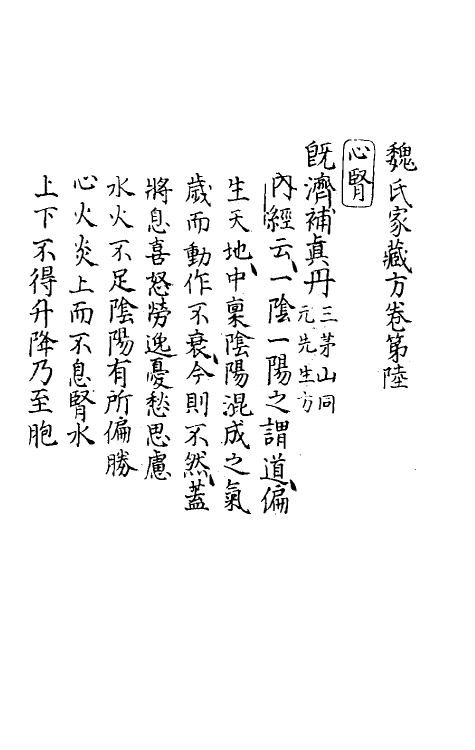 魏氏家藏方卷第陸
心腎
旣濟補眞丹三茅山同元先生方
內經云一陰一陽之謂道偏
生天地中稟陰陽混成之氣
歲而動作不衰今則不然蓋
將息喜怒勞逸憂愁思慮
水火不足陰陽有所偏勝
心火炎上而不息腎水
上下不得升降乃至胞